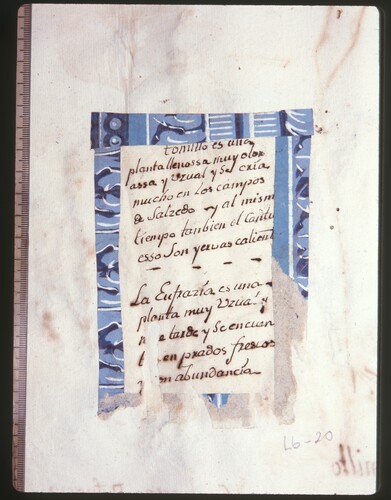 tomillo es una
planta llenossa muy olor
assa y Vzual y Se cria
mucho en los campos
de Salzedo y al mism
tiempo tanbien el Cantu
esso Son yervas calient
La Eufrazia es una
planta muy Vzual y
tarde y Se encuen
en prados frescos
en abundancia
L6-20